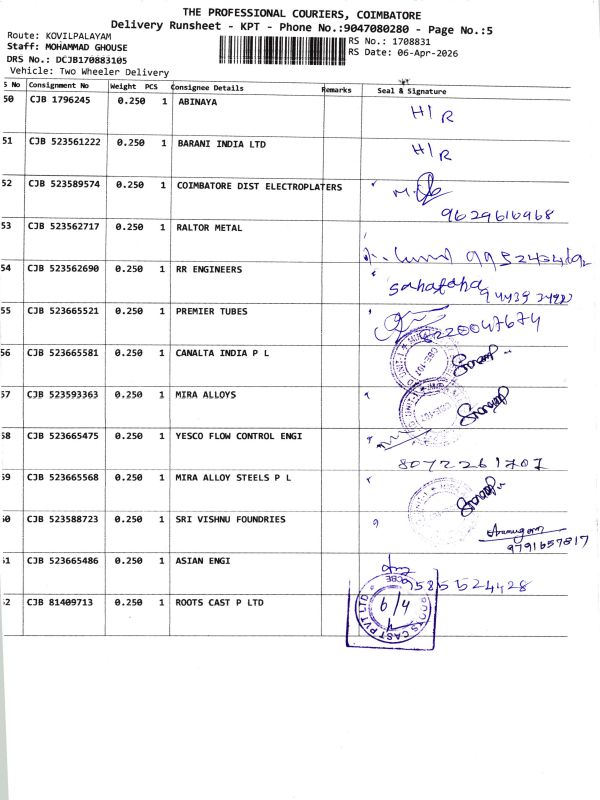 THE PROFESSIONAL COURIERS, COIMBATORE
Delivery Runsheet - KPT - Phone No.:9047080280 - Page No.:5
Route: KOVILPALAYAM
RS No.: 1708831
Staff: MOHAMMAD GHOUSE
RS Date: 06-Apr-2026
DRS No.: DCJB170883105
Vehicle: Two Wheeler Delivery
S No Consignment No Weight PCS Consignee Details Remarks Seal & Signature
50 CJB 1796245 0.250 1 ABINAYA H/R
51 CJB 523561222 0.250 1 BARANI INDIA LTD H/R
52 CJB 523589574 0.250 1 COIMBATORE DIST ELECTROPLATERS
9629616968
53 CJB 523562717 0.250 1 RALTOR METAL
54 CJB 523562690 0.250 1 RR ENGINEERS
55 CJB 523665521 0.250 1 PREMIER TUBES
8220047674
56 CJB 523665581 0.250 1 CANALTA INDIA P L
57 CJB 523593363 0.250 1 MIRA ALLOYS
58 CJB 523665475 0.250 1 YESCO FLOW CONTROL ENGI
8072261707
59 CJB 523665568 0.250 1 MIRA ALLOY STEELS P L
60 CJB 523588723 0.250 1 SRI VISHNU FOUNDRIES
9791657817
61 CJB 523665486 0.250 1 ASIAN ENGI
9585524428
62 CJB 81409713 0.250 1 ROOTS CAST P LTD
ROOTS CAST PVT LTD
CBE
6/4